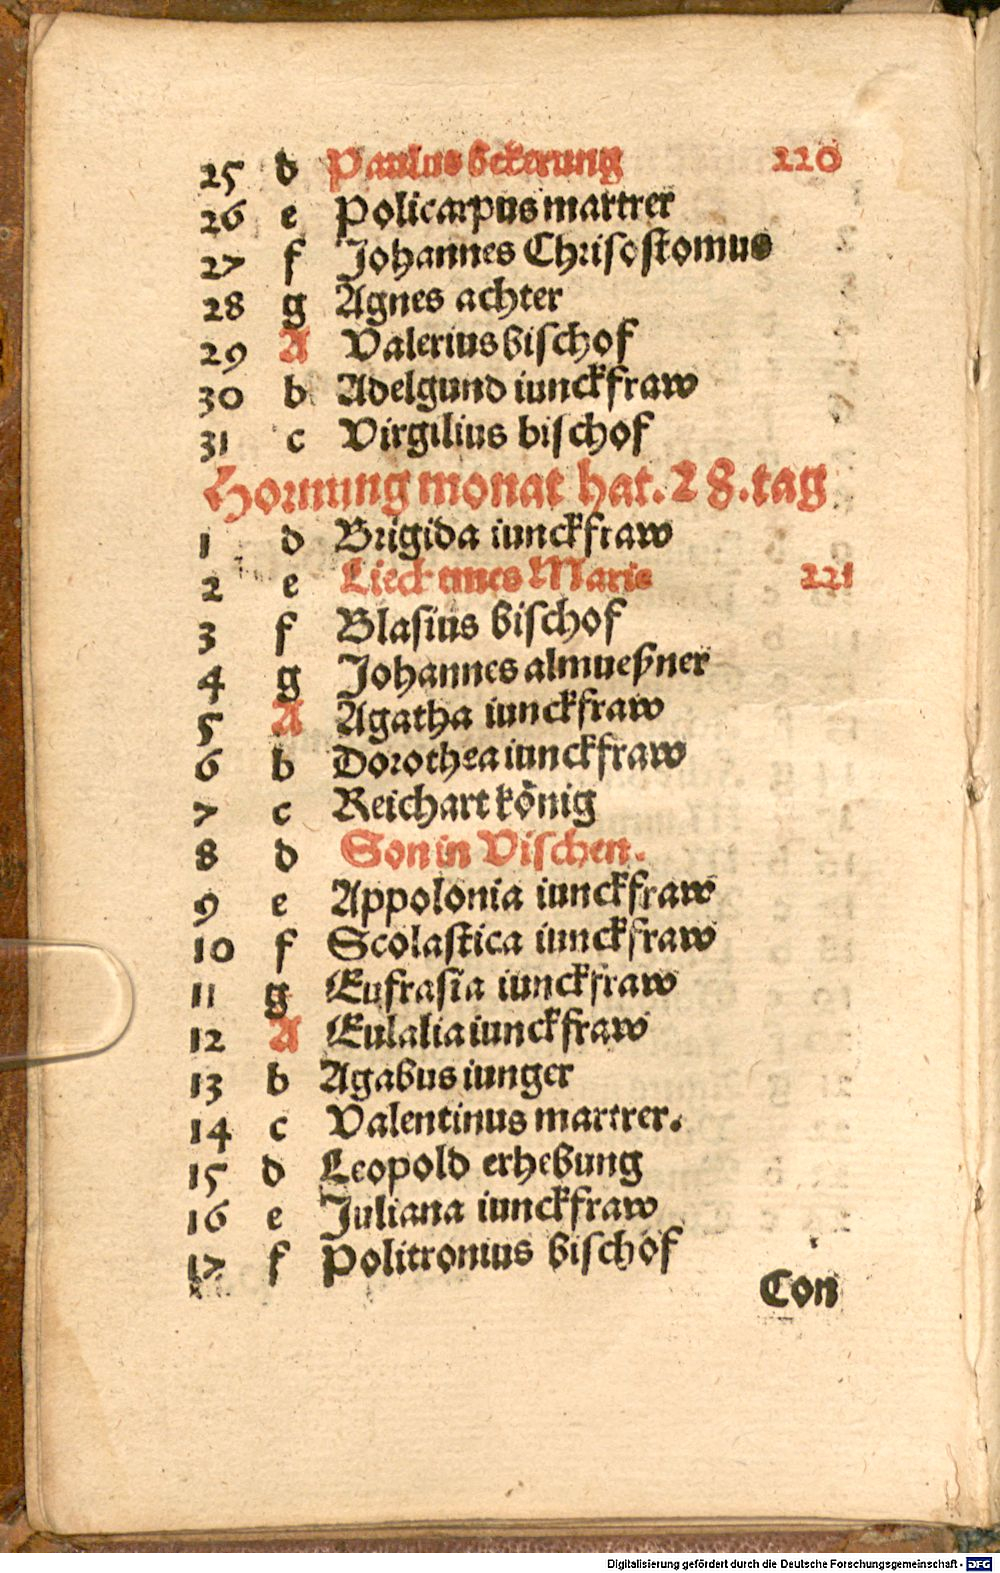 25 d Paulus bekerung 220
26 e Policarpus martrer
27 f Johannes Chrisostomus
28 g Agnes achter
29 A Valerius bischof
30 b Adelgund iunckfraw
31 c Virgilius bischof
Hornung monat hat. 28. tag
1 d Brigida iunckfraw
2 e Liechtmes Marie 221
3 f Blasius bischof
4 g Johannes almueßner
5 A Agatha iunckfraw
6 b Dorothea iunckfraw
7 c Reichart könig
8 d Son in Vischen.
9 e Appolonia iunckfraw
10 f Scolastica iunckfraw
11 g Eufrasia iunckfraw
12 A Eulalia iunckfraw
13 b Agabus iunger
14 c Valentinus martrer.
15 d Leopold erhebung
16 e Juliana iunckfraw
17 f Politronius bischof
Con
Digitalisierung gefördert durch die Deutsche Forschungsgemeinschaft - DFG